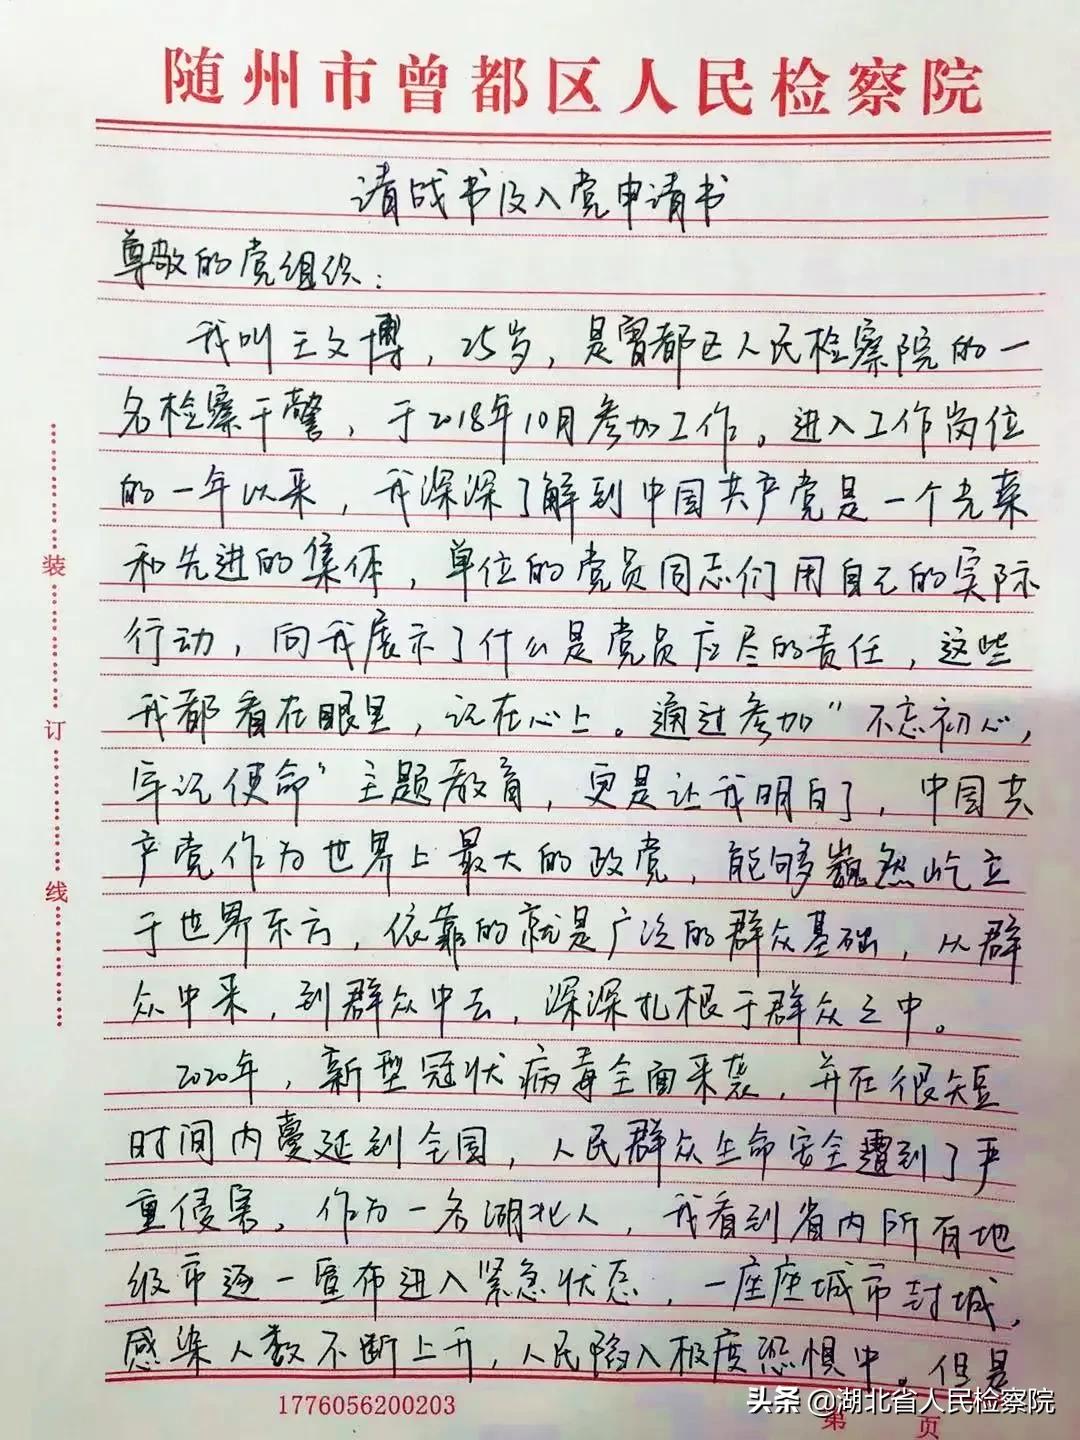 随州市曾都区人民检察院
请战书及入党申请书
尊敬的党组织：
我叫王文博，25岁，是曾都区人民检察院的一
名检察干警，于2018年10月参加工作。进入工作岗位
的一年以来，我深深了解到中国共产党是一个光荣
和先进的集体，单位的党员同志们用自己的实际
行动，向我展示了什么是党员应尽的责任，这些
我都看在眼里，记在心上。通过参加"不忘初心，
牢记使命"主题教育，更是让我明白了，中国共
产党作为世界上最大的政党，能够巍然屹立
于世界东方，依靠的就是广泛的群众基础，从群
众中来，到群众中去，深深扎根于群众之中。
2020年，新型冠状病毒全面来袭，并在很短
时间内蔓延到全国，人民群众生命安全遭到了严
重侵害。作为一名湖北人，我看到省内所有地
级市逐一宣布进入紧急状态，一座座城市封城，
感染人数不断上升，人民陷入极度恐惧中。但是
装
订
线
1776056200203
第 页
头条@湖北省人民检察院